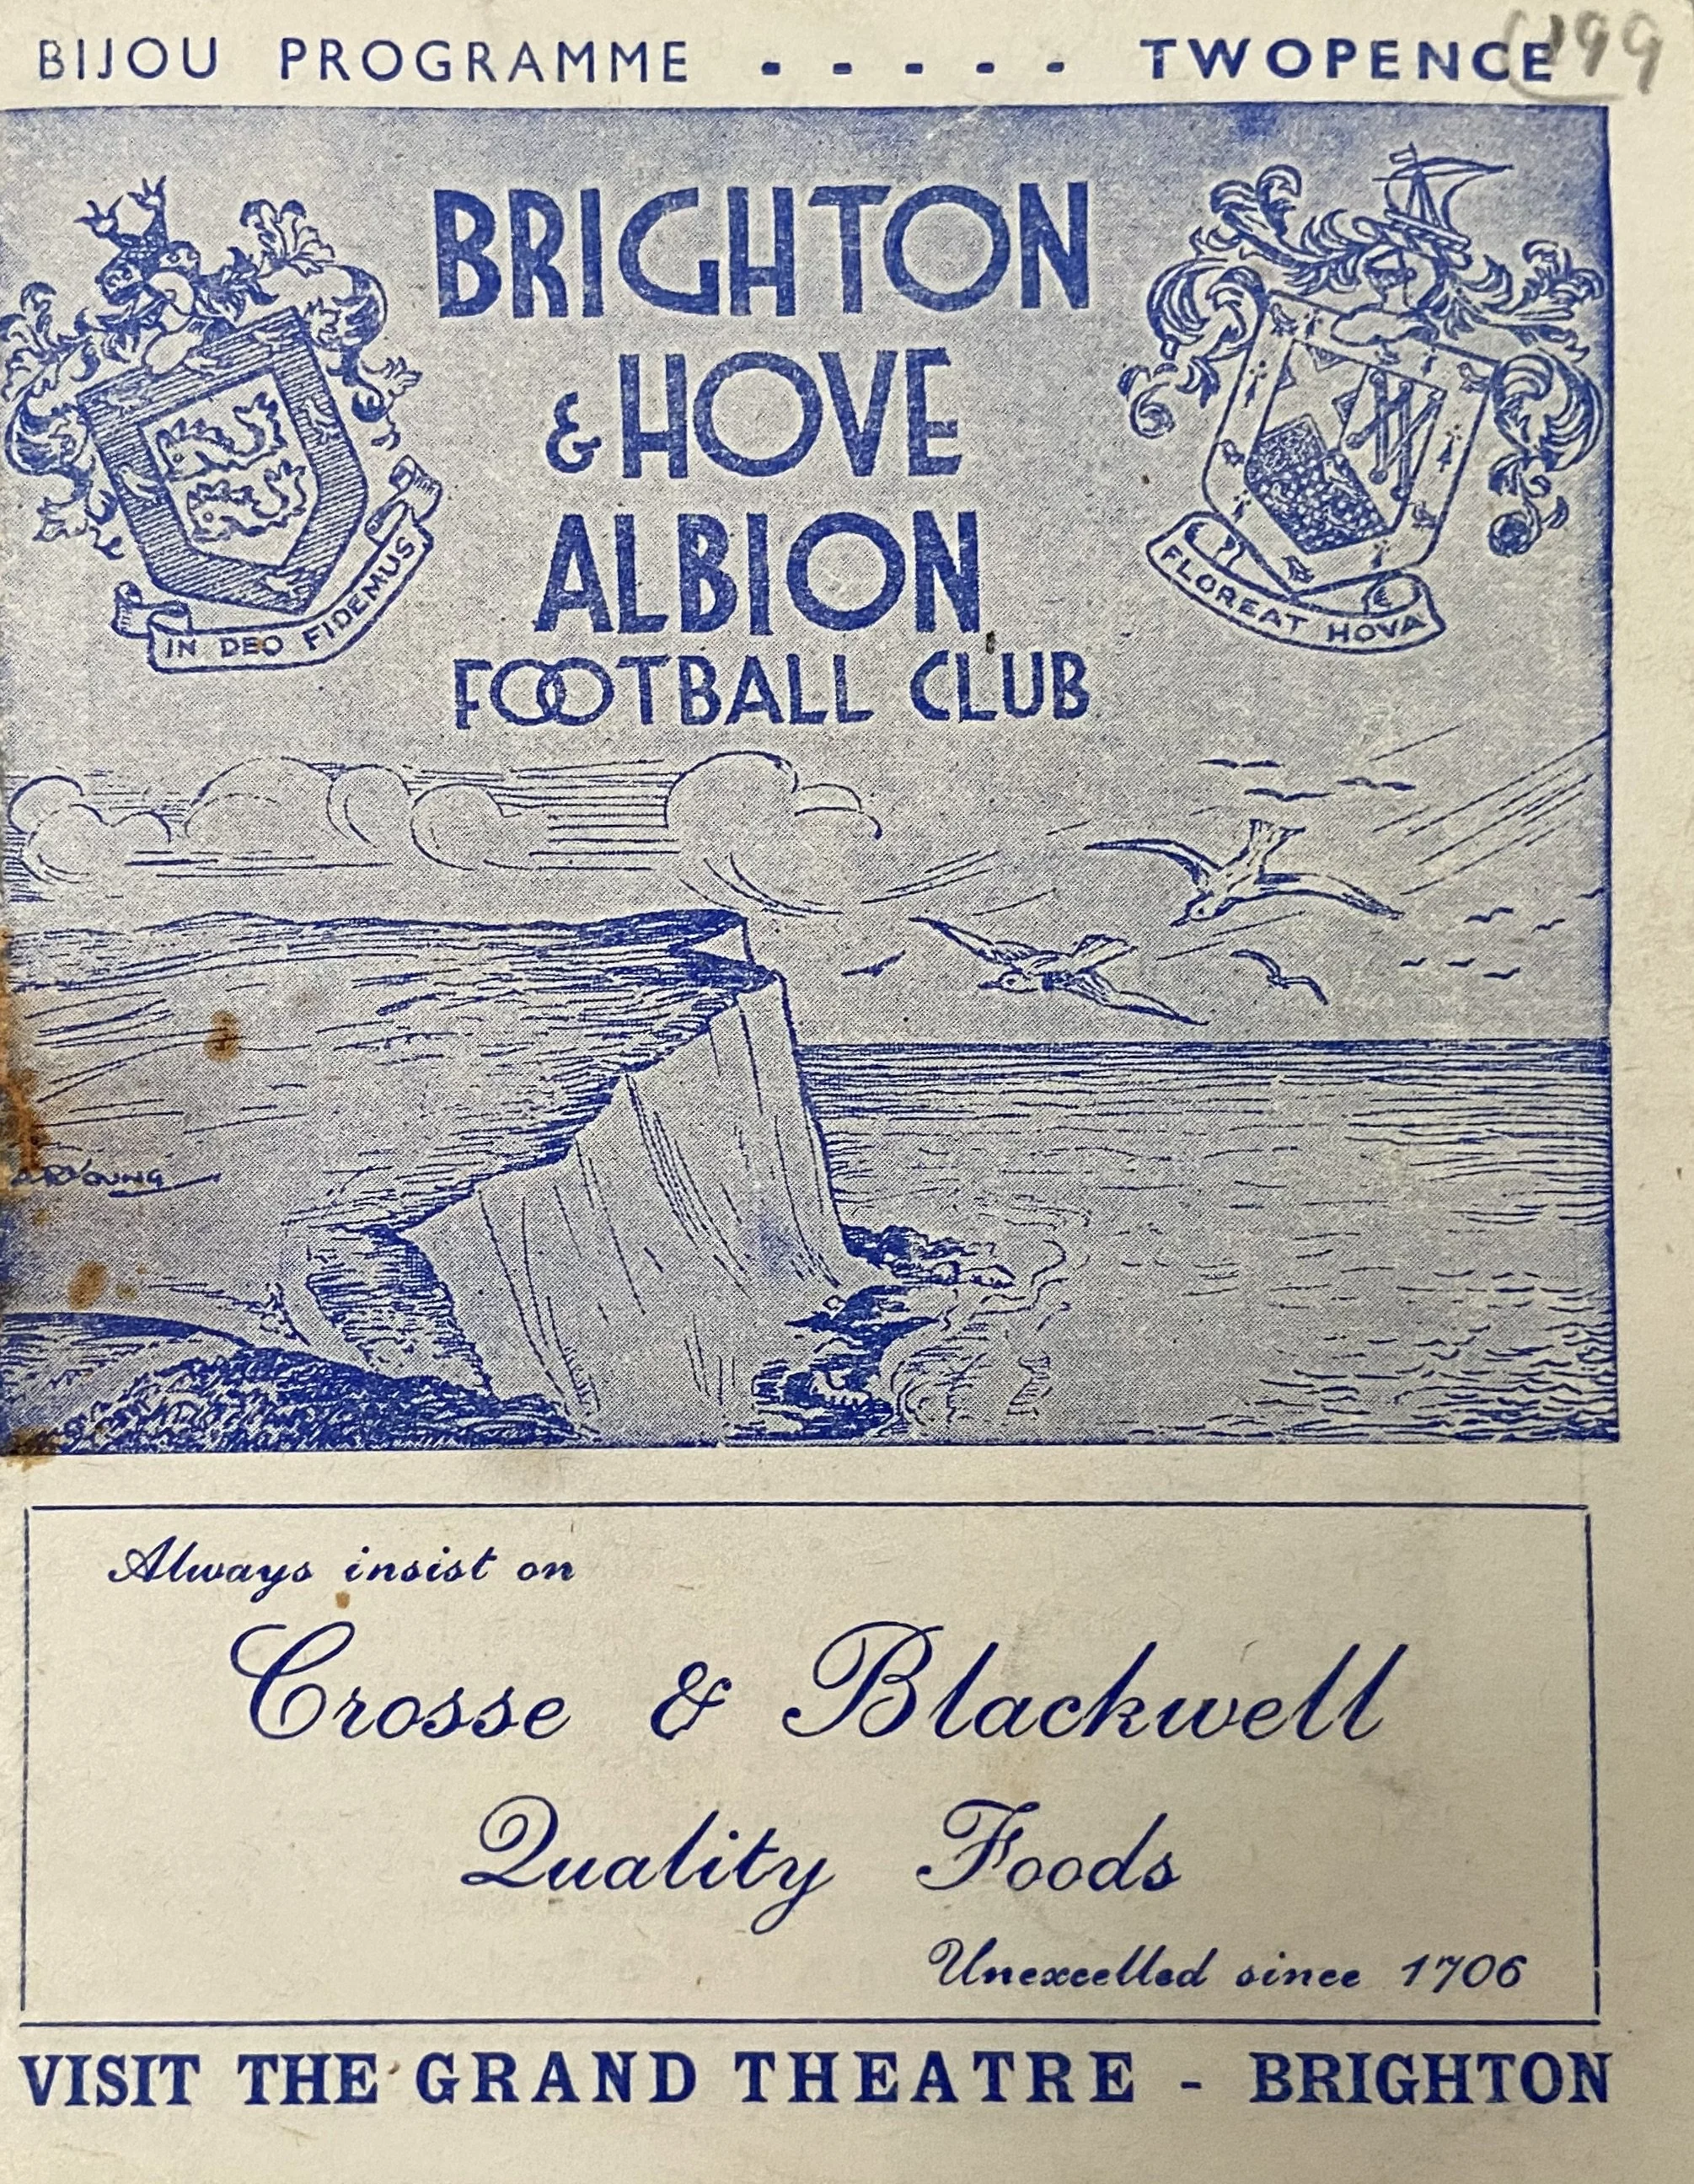 BIJOU PROGRAMME - - - - - TWOPENCE
BRIGHTON
& HOVE
ALBION
FOOTBALL CLUB
IN DEO FIDEMUS
FLOREAT HOVA
Always insist on
Crosse & Blackwell
Quality Foods
Unexcelled since 1706
VISIT THE GRAND THEATRE - BRIGHTON